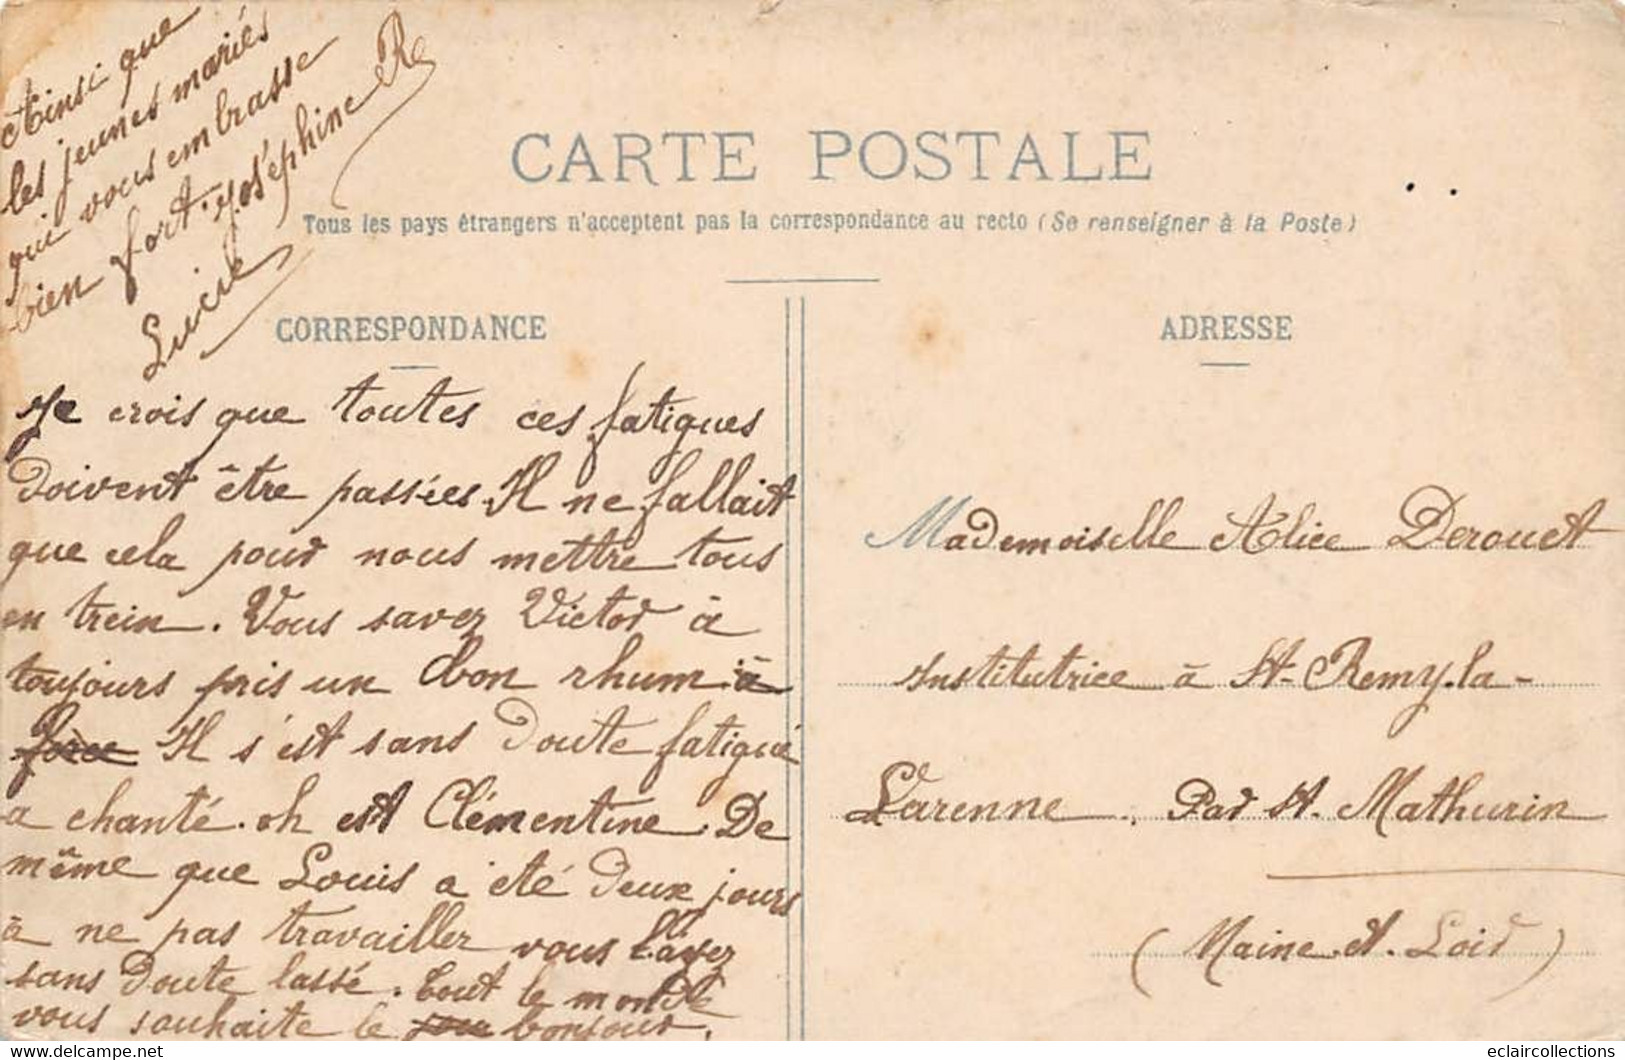 Ainsi que
les jeunes mariés
qui vous embrasse
bien fort. Joséphine Re
Lucile
CARTE POSTALE
Tous les pays étrangers n'acceptent pas la correspondance au recto (Se renseigner à la Poste)
CORRESPONDANCE
Je crois que toutes ces fatigues
doivent être passées. Il ne fallait
que cela pour nous mettre tous
en trein. Vous savez Victor à
toujours pris un bon rhum à
force Il s'est sans doute fatigué
a chanté. oh est Clémentine. De
même que Louis a été deux jours
à ne pas travailler vous l'avez
sans doute lassé. Tout le monde
vous souhaite le bonjour.
ADRESSE
Mademoiselle Alice Derouet
Institutrice à St-Remy-la-
Varenne. Par St. Mathurin
(Maine.et.Loir)
www.eclaircollections.com
eclaircollections